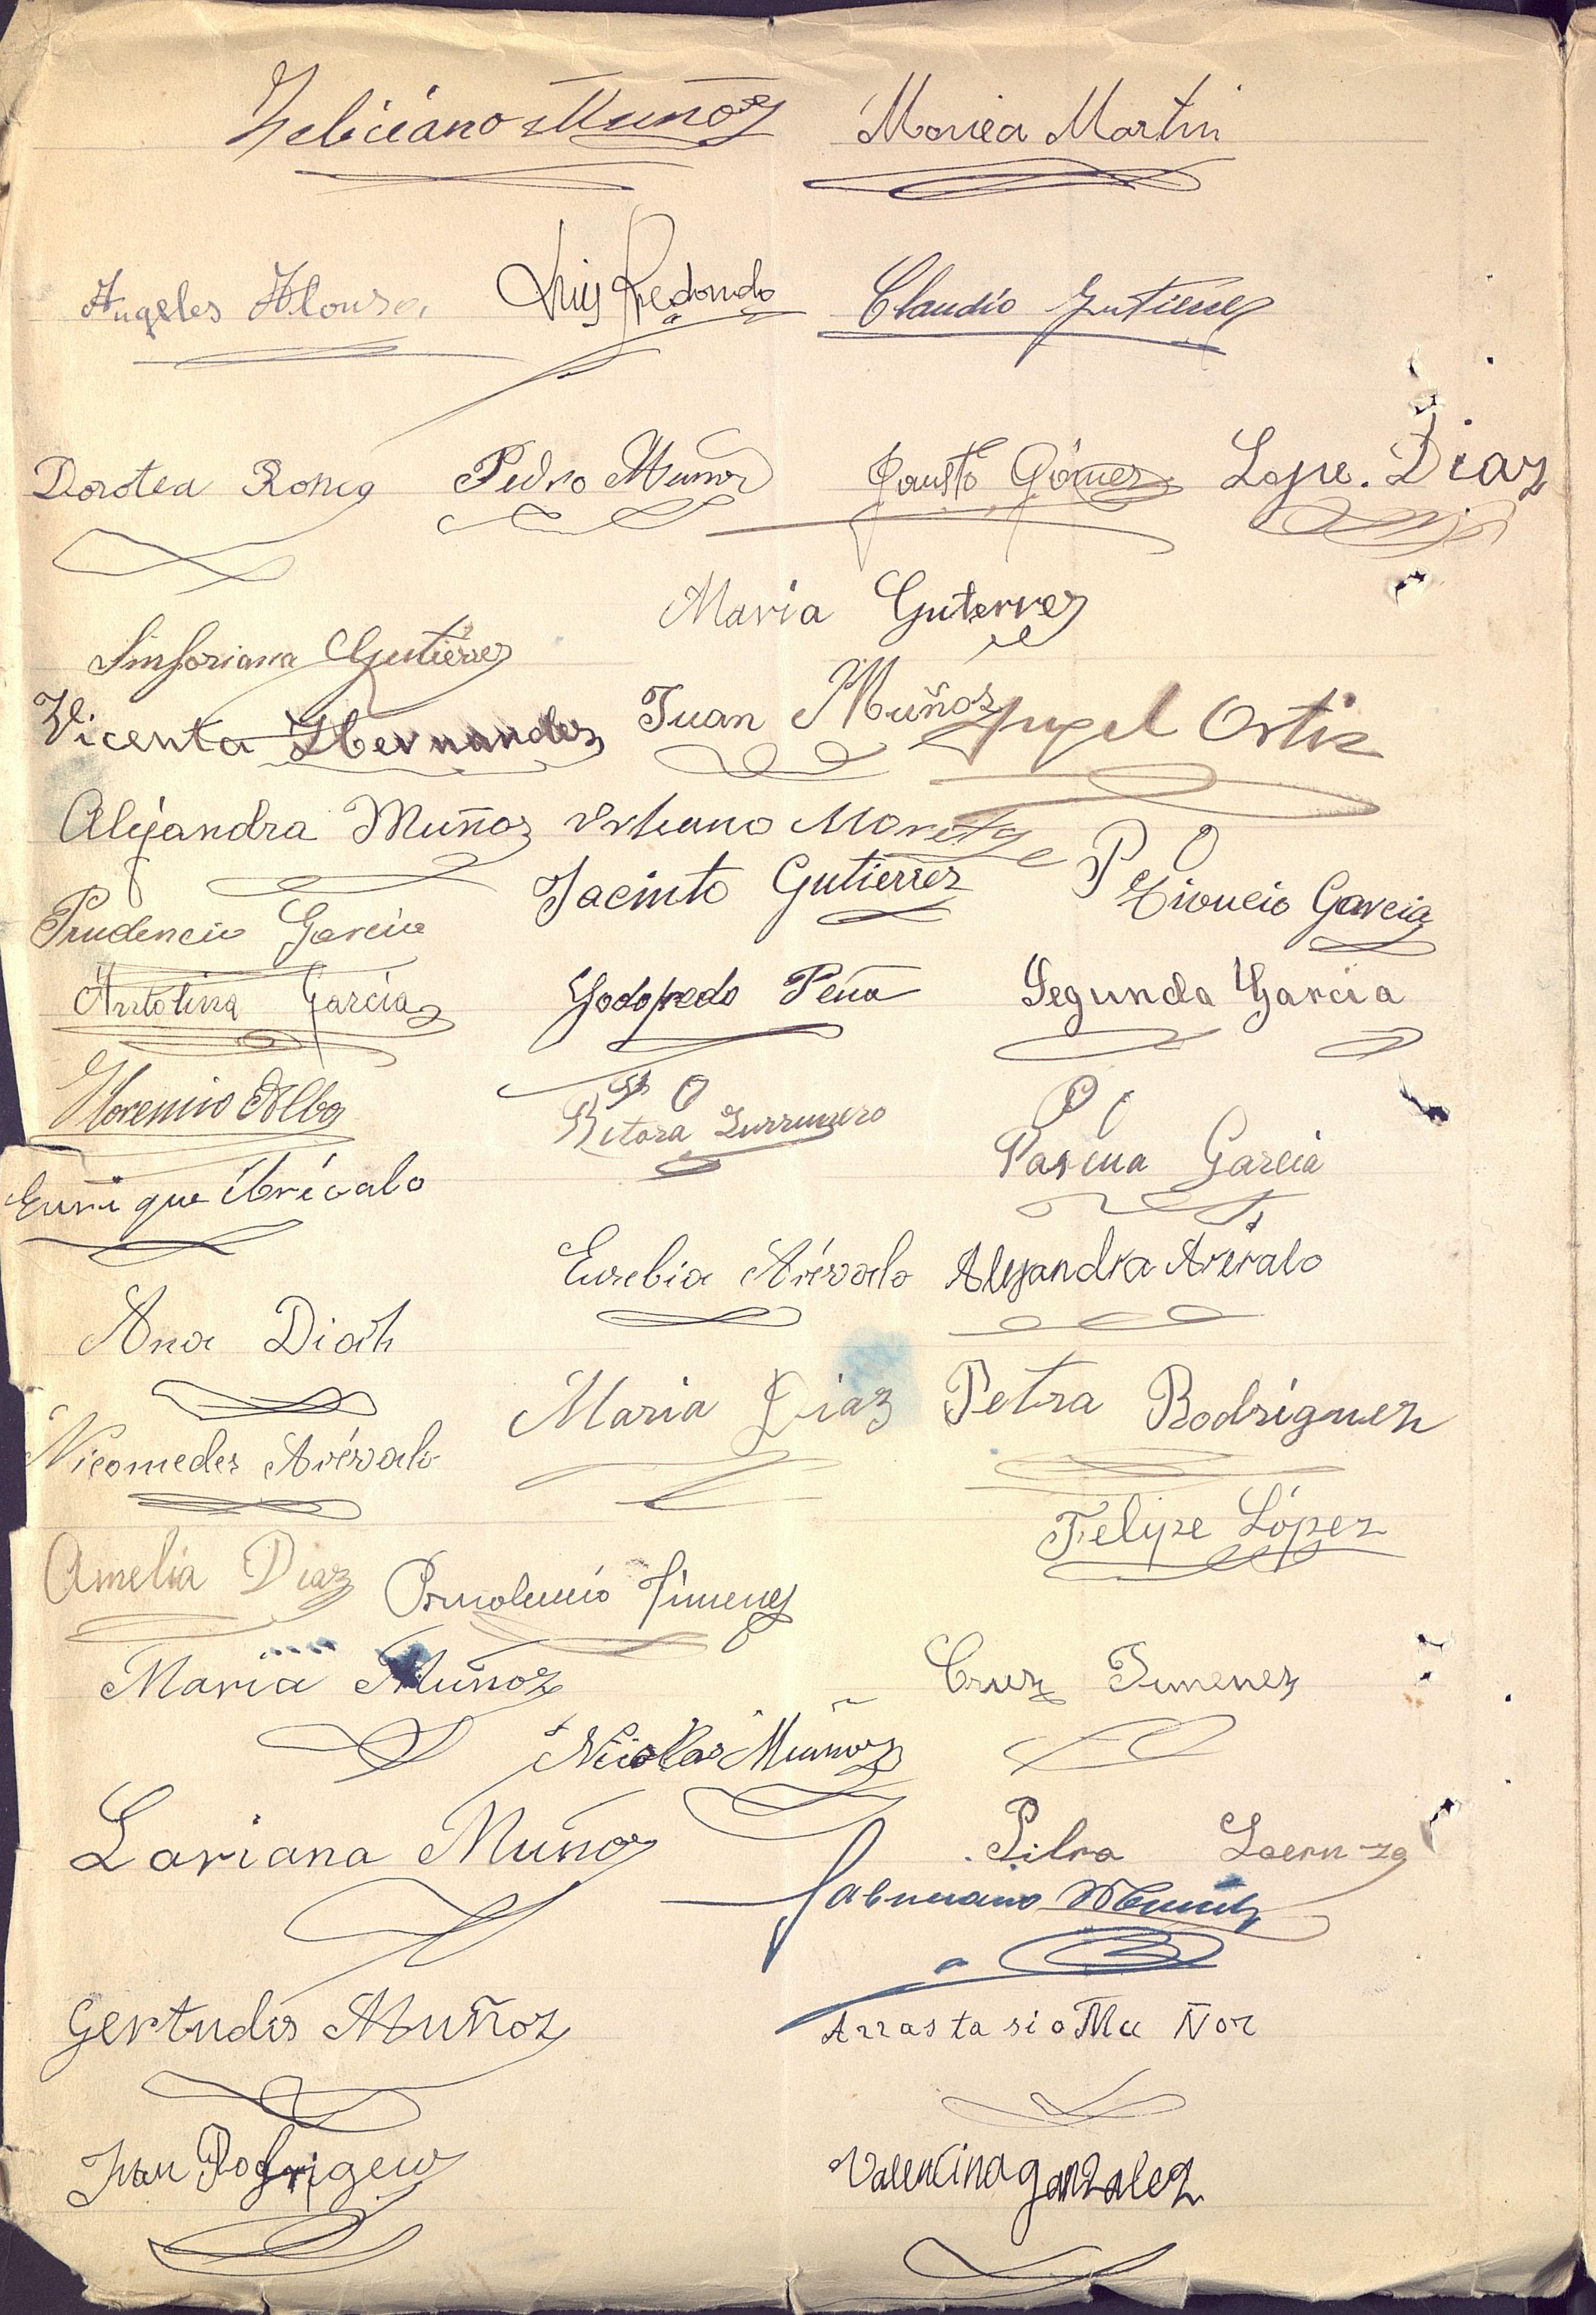 Feliciano Muñoz Monica Martin
Angeles Alonso Luis Redondo Claudio Gutierrez
Dorotea Pedro Muñoz Fausto Gómez Lope. Diaz
Maria Guterrez
Sinforiana Gutierrez
Vicenta Hernandez Juan Muñoz Angel Ortiz
Alejandra Muñoz Urbano
P O
Prudencio Garcia Jacinto Gutierrez Garcia
Antolina Garcia Godofredo Peña Segunda Garcia
Florencio Alba P O P O
Garcia
Enrrique Arévalo
Eusebia Arévalo Alejandra Arévalo
Ana Diah
Maria Diaz Petra Rodriguez
Nicomedes Arévalo
Felipe López
Amelia Diaz Jimenez
Maria Muñoz Cruz Jimenez
Nicolas Muñoz
Lariana Muñoz Pilra
Gertudis Muñoz Anastasio Mu Ñoz
Juan Rodrigew Valentina ganzalez